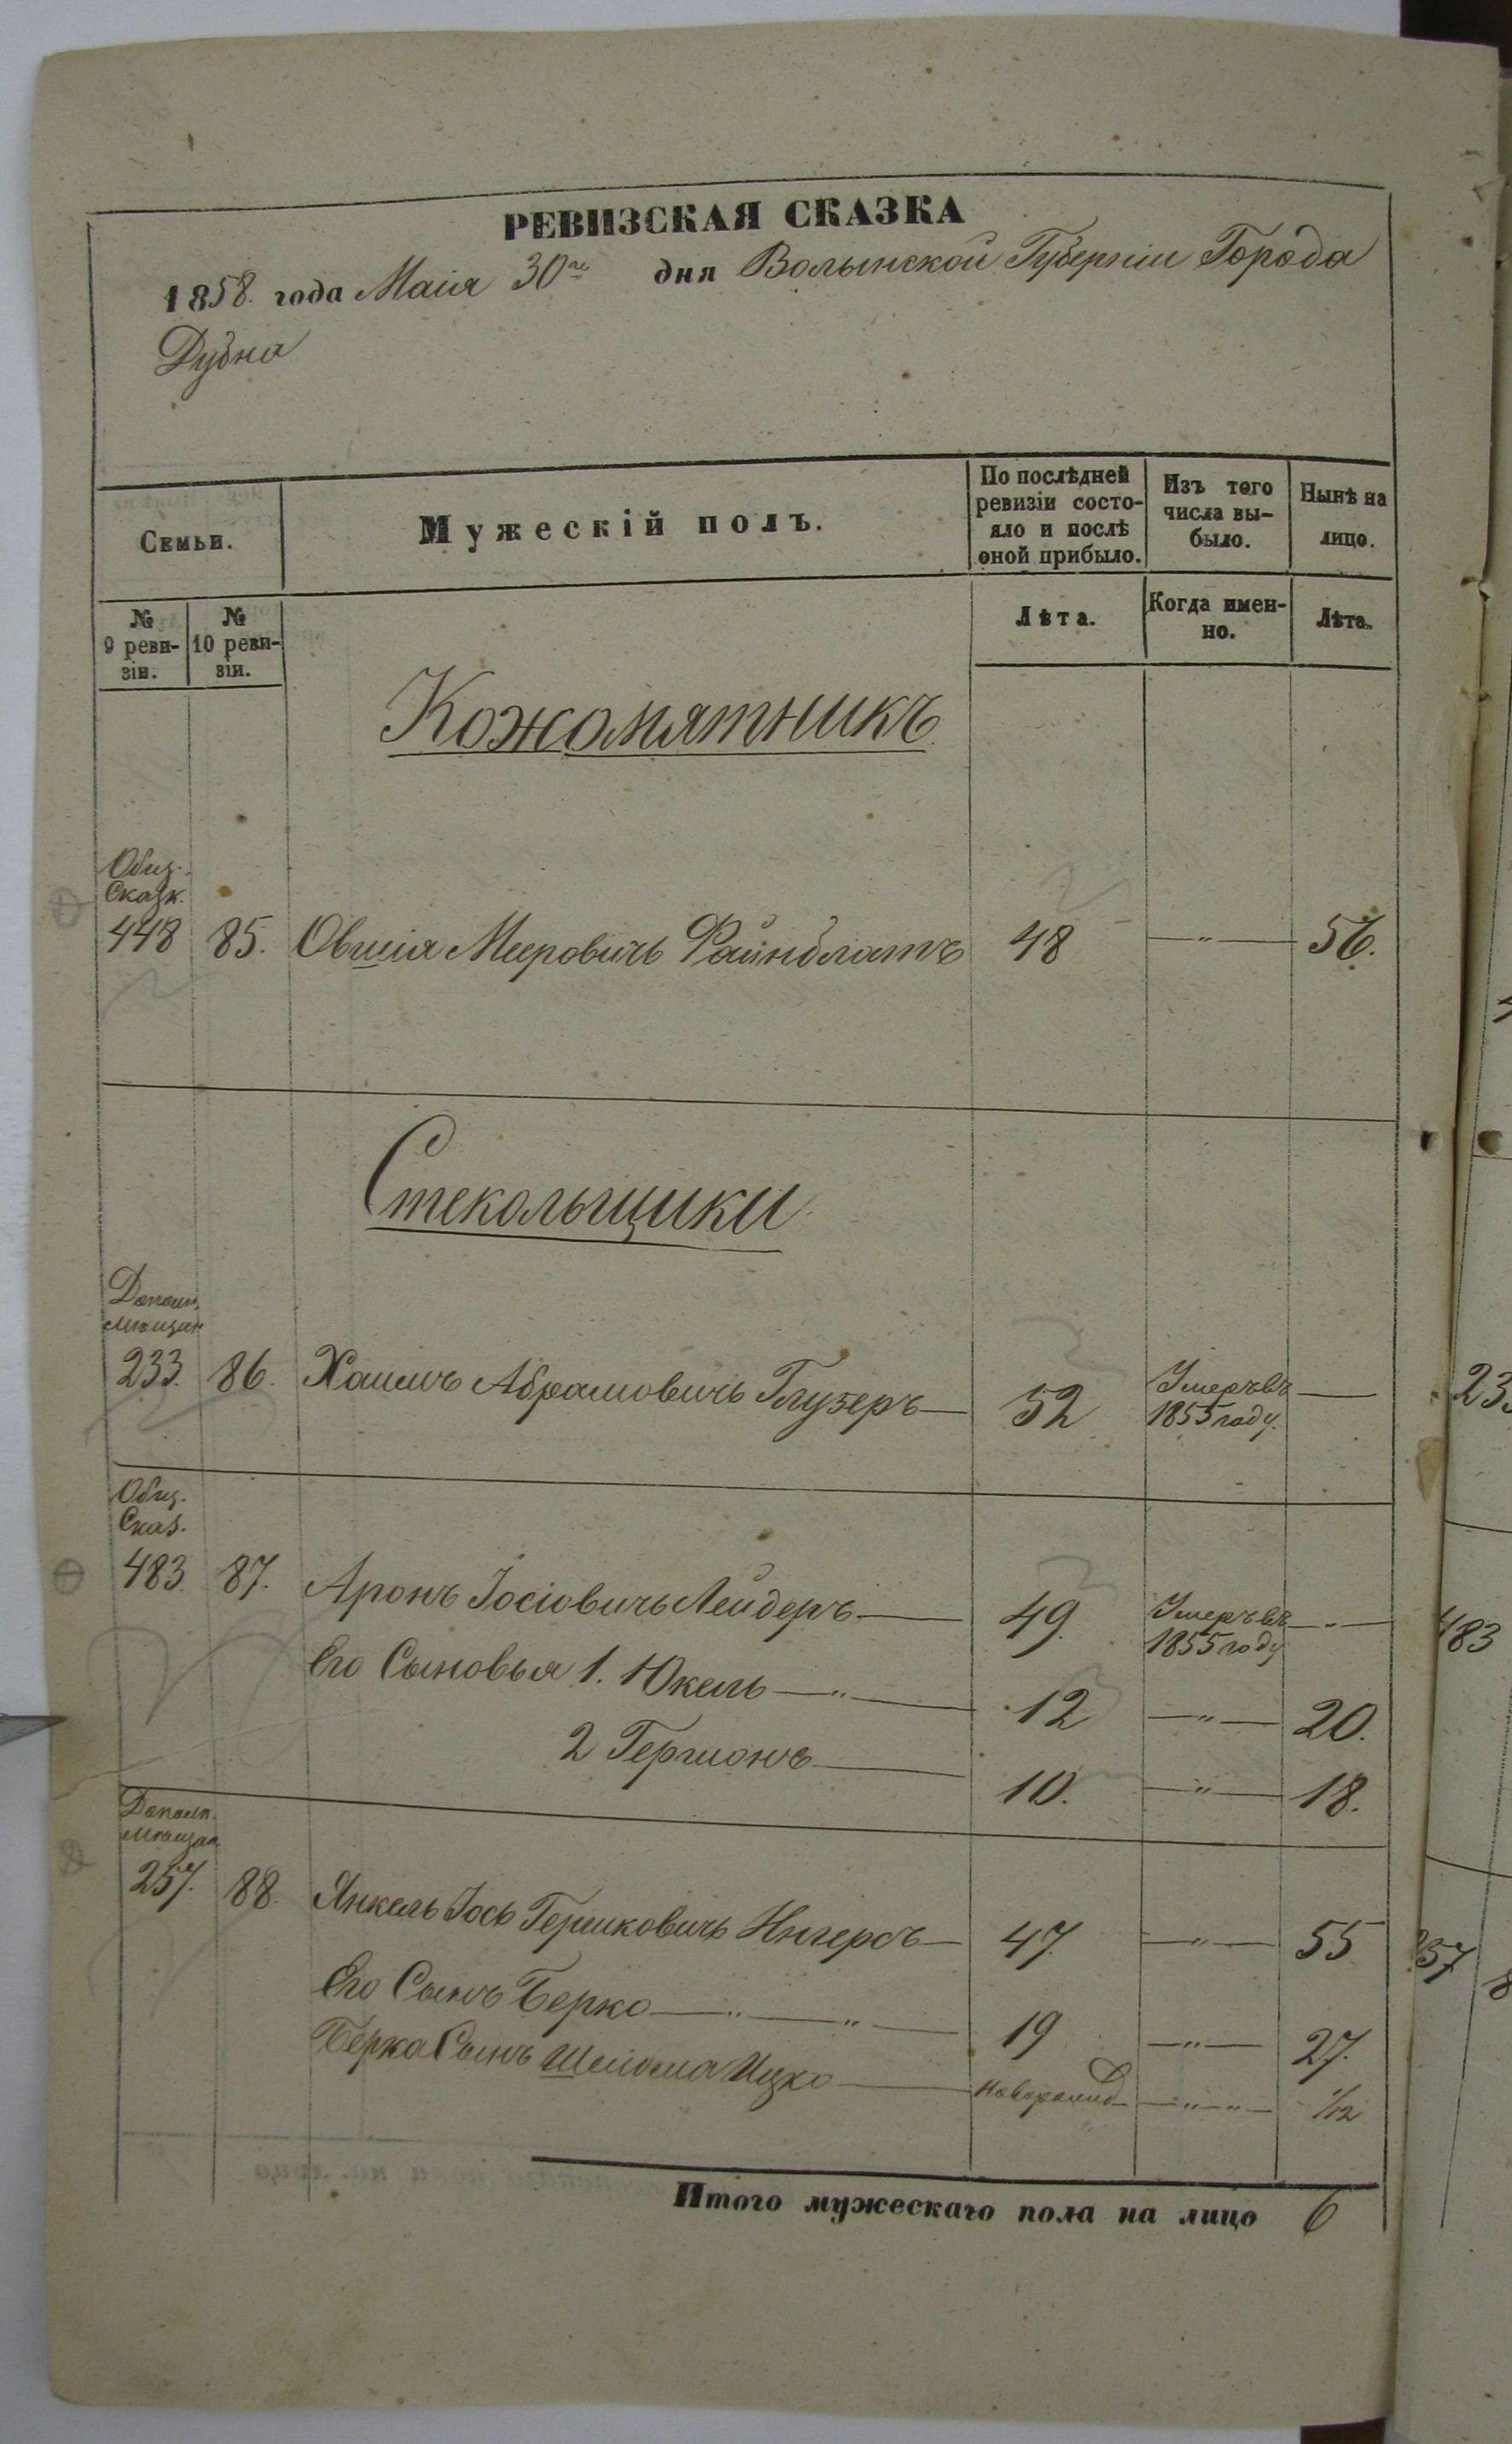 РЕВИЗСКАЯ СКАЗКА
1858. года Маія 30го дня Волынской Губерніи Города
Дубна
Семьи.
Мужескій полъ.
По послѣдней
ревизіи состо-
яло и послѣ
оной прибыло.
Изъ того
числа вы-
было.
Нынѣ на
лицо.
№
9 реви-
зіи.
№
10 реви-
зіи.
Лѣта.
Когда имен-
но.
Лѣта.
Кожомятникъ
Общ.
Сказк.
448 85. Овшія Мееровичъ Файнблатъ 48 —„— 56.
Стекольщики
Дополн.
мѣщан
233. 86. Хаимъ Абрамовичъ Глузеръ— 52 Умеръ въ —
1855 году.
Общ.
Сказ.
483. 87. Аронъ Іосіовичъ Лейдеръ— 49. Умеръ въ —„—
1855 году
Его Сыновья 1. Юкель—„— 12 —„— 20.
2 Гершонъ— 10. —„— 18.
Дополн.
мѣщан.
257. 88. Янкель Іось Гершковичъ Ингеръ— 47. —„— 55
Его Сынъ Берко—„—„— 19 —„— 27.
Берка Сынъ Шліома Ицко— Новорожд —„—„— 1/12
Итого мужескаго пола на лицо 6
23
483
257 8